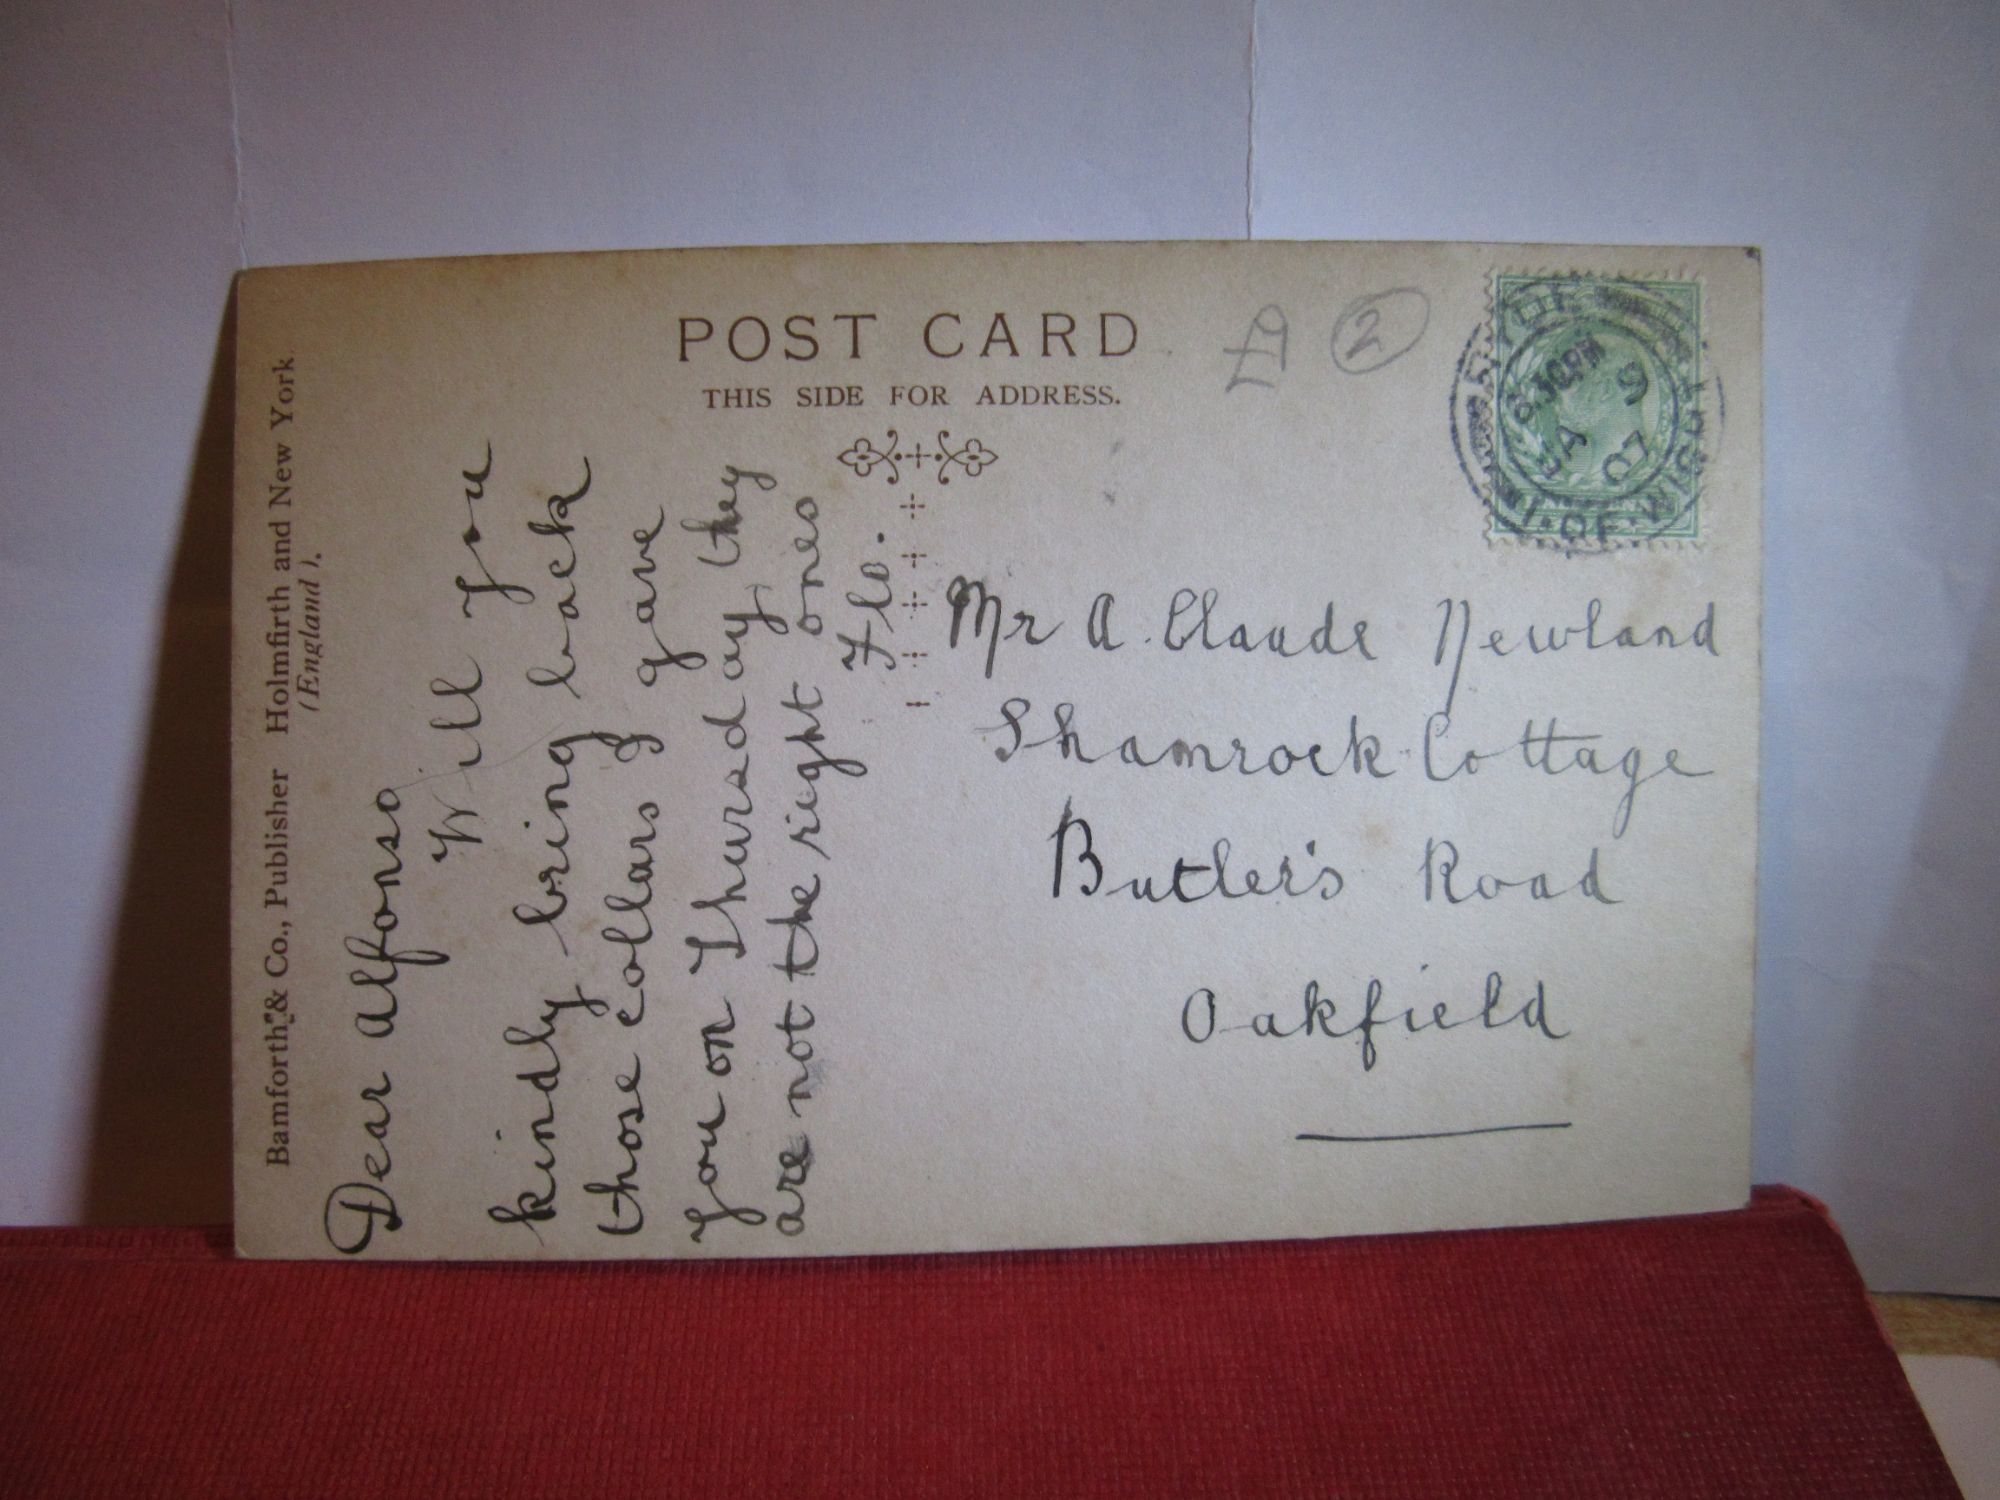 Bamforth & Co., Publisher Holmfirth and New York.
(England).
POST CARD
THIS SIDE FOR ADDRESS.
£1 2
8.30PM
9
07
OF WIGHT
Dear Alfonso
Will you
kindly bring back
those collars I gave
you on Thursday, they
are not the right ones
Flo.
Mr A. Claude Newland
Shamrock Cottage
Butler's Road
Oakfield